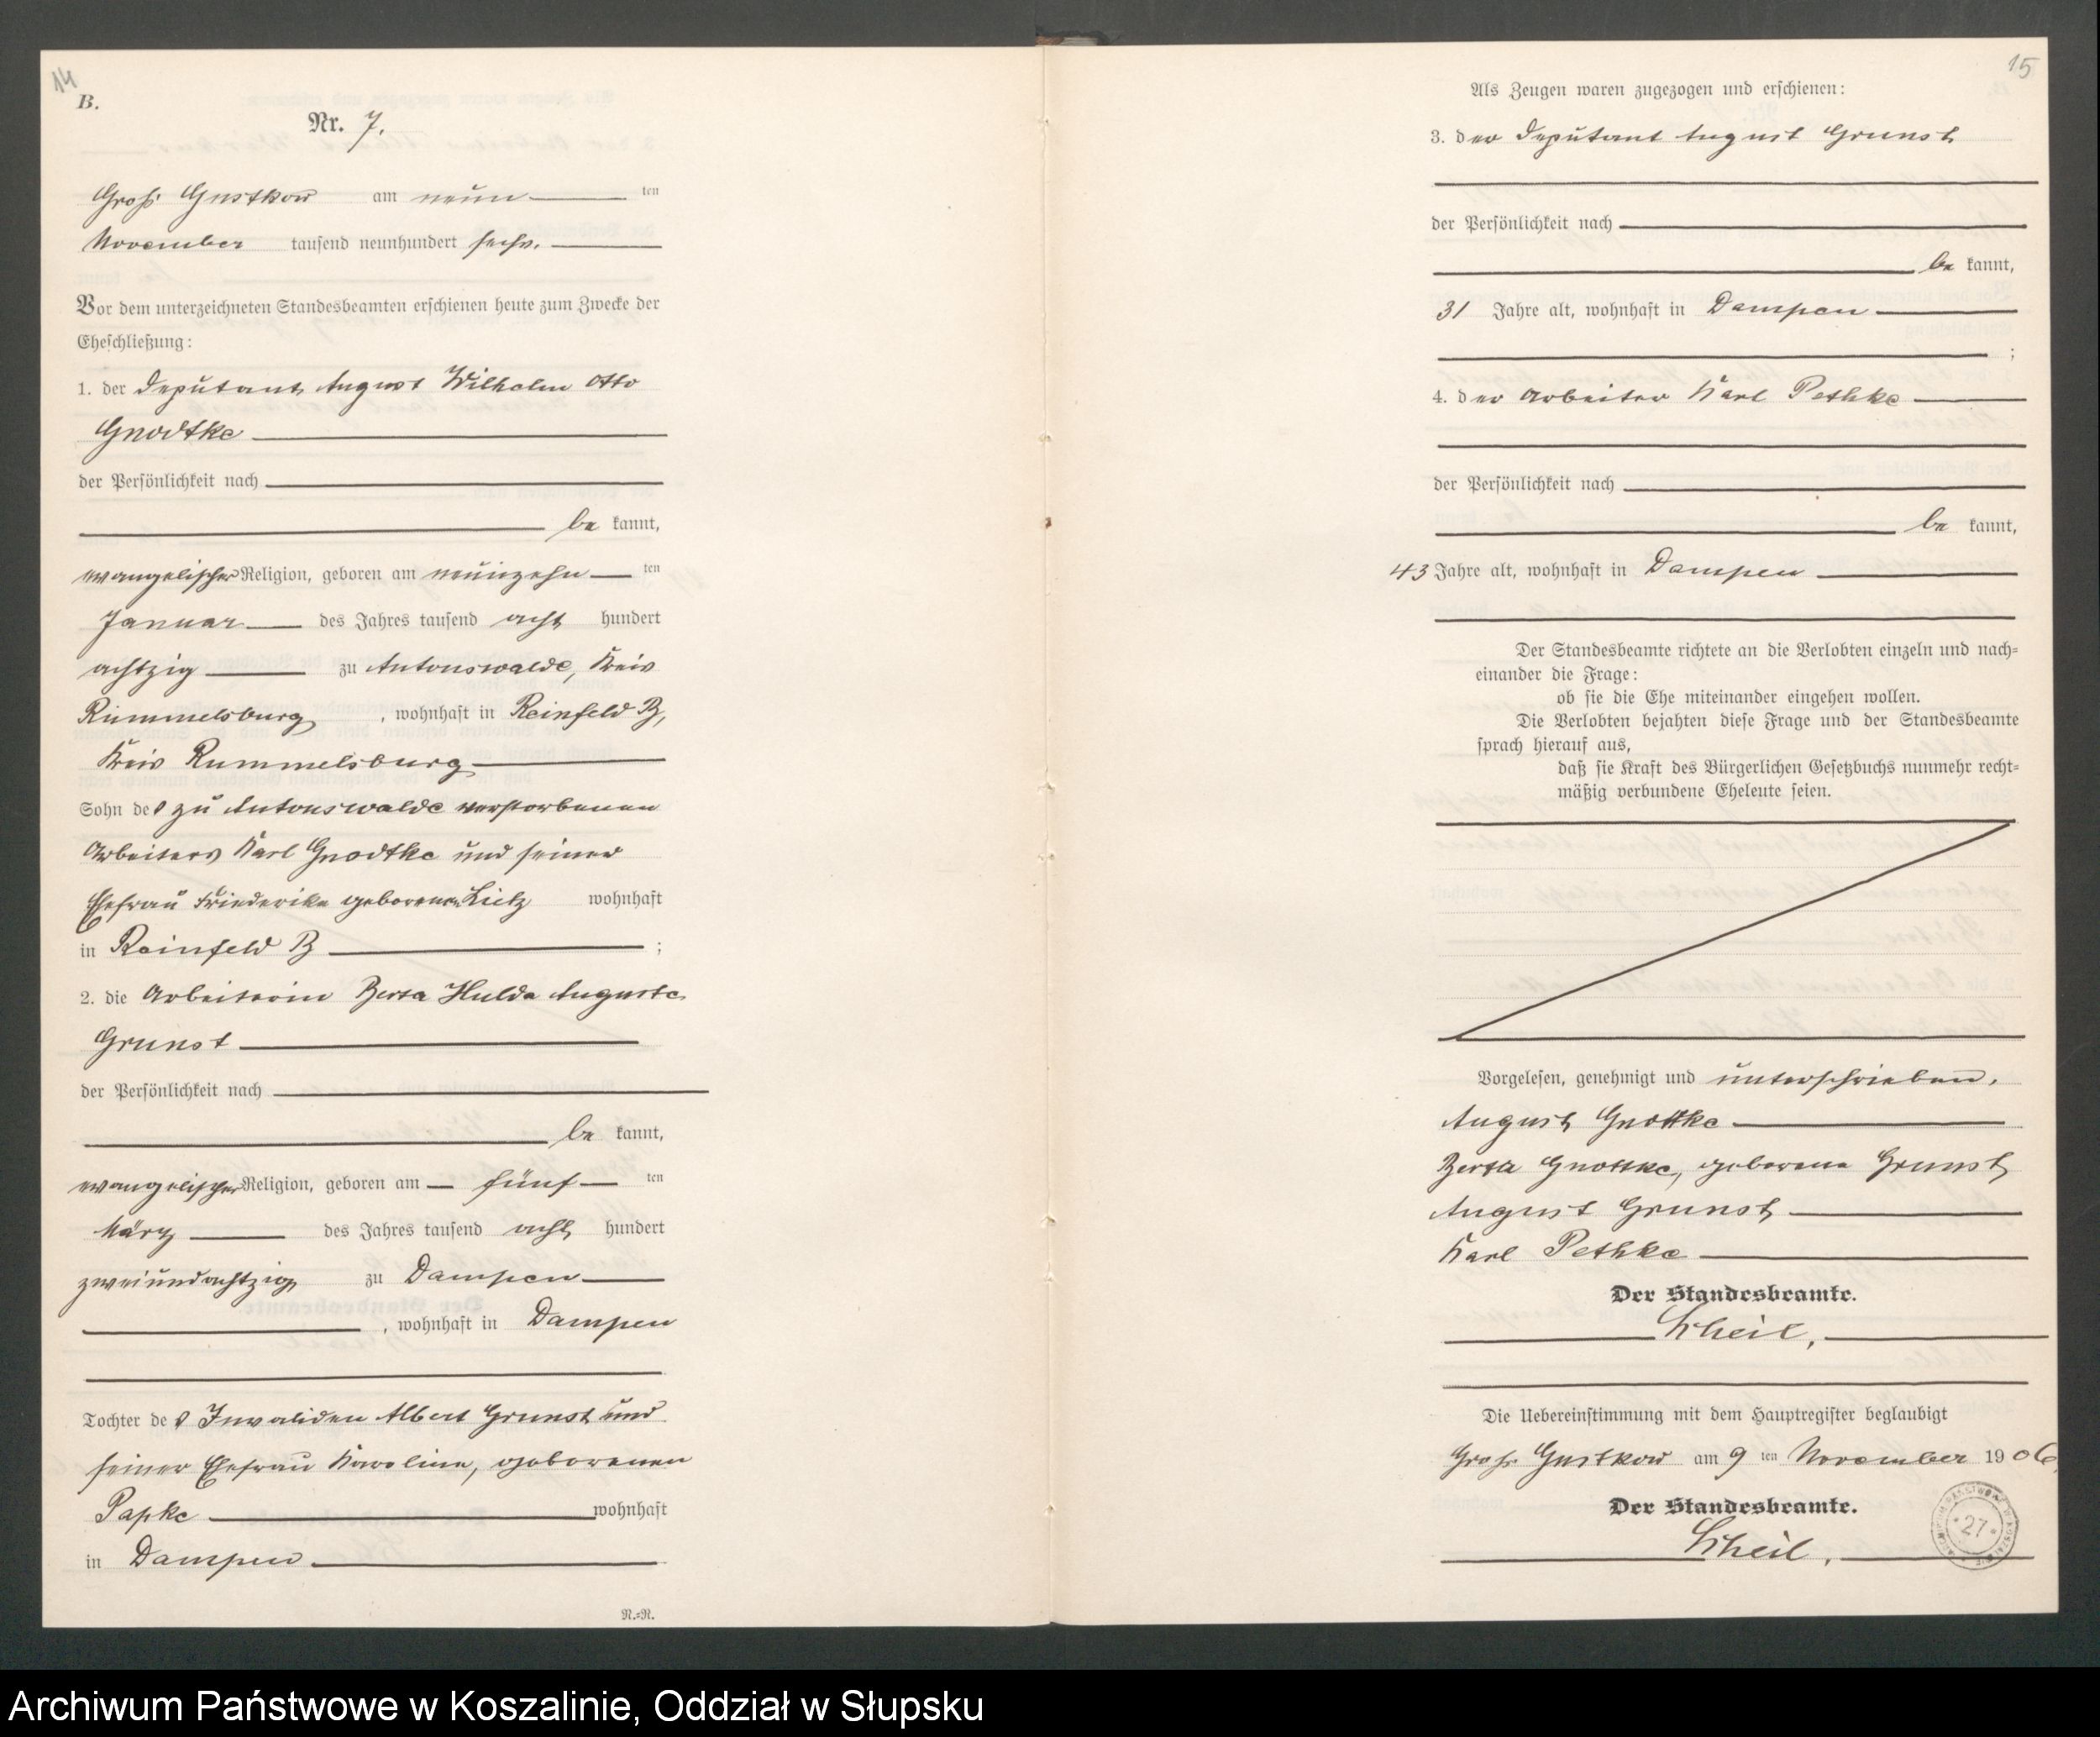 14
B.
Nr. 7.
Groß Gustkow am neun ten
November tausend neunhundert sechs.
Vor dem unterzeichneten Standesbeamten erschienen heute zum Zwecke der
Eheschließung:
1. der Deputant August Wilhelm Otto
Gnodtke
der Persönlichkeit nach
be kannt,
evangelischer Religion, geboren am neunzehn ten
Januar des Jahres tausend acht hundert
achtzig zu Antonswalde, Kreis
Rummelsburg, wohnhaft in Reinfeld B,
Kreis Rummelsburg
Sohn des zu Antonswalde verstorbenen
Arbeiters Karl Gnodtke und seiner
Ehefrau Friederike geborenen Lietz wohnhaft
in Reinfeld B ;
2. die Arbeiterin Berta Hulda Auguste
Grunst
der Persönlichkeit nach
be kannt,
evangelischer Religion, geboren am fünf ten
März des Jahres tausend acht hundert
zweiundachtzig zu Dampen
, wohnhaft in Dampen
Tochter des Invaliden Albert Grunst und
seiner Ehefrau Karoline, geborenen
Papke wohnhaft
in Dampen
N.=N.
15
Als Zeugen waren zugezogen und erschienen:
3. der Deputant August Grunst
der Persönlichkeit nach
be kannt,
31 Jahre alt, wohnhaft in Dampen
;
4. der Arbeiter Karl Pethke
der Persönlichkeit nach
be kannt,
43 Jahre alt, wohnhaft in Dampen
Der Standesbeamte richtete an die Verlobten einzeln und nach=
einander die Frage:
ob sie die Ehe miteinander eingehen wollen.
Die Verlobten bejahten diese Frage und der Standesbeamte
sprach hierauf aus,
daß sie Kraft des Bürgerlichen Gesetzbuchs nunmehr recht=
mäßig verbundene Eheleute seien.
Vorgelesen, genehmigt und unterschrieben.
August Gnottke
Berta Gnottke, geborene Grunst
August Grunst
Karl Pethke
Der Standesbeamte.
Scheil.
Die Uebereinstimmung mit dem Hauptregister beglaubigt
Groß Gustkow am 9 ten November 1906.
Der Standesbeamte.
Scheil.
* 27 *
Archiwum Państwowe w Koszalinie, Oddział w Słupsku